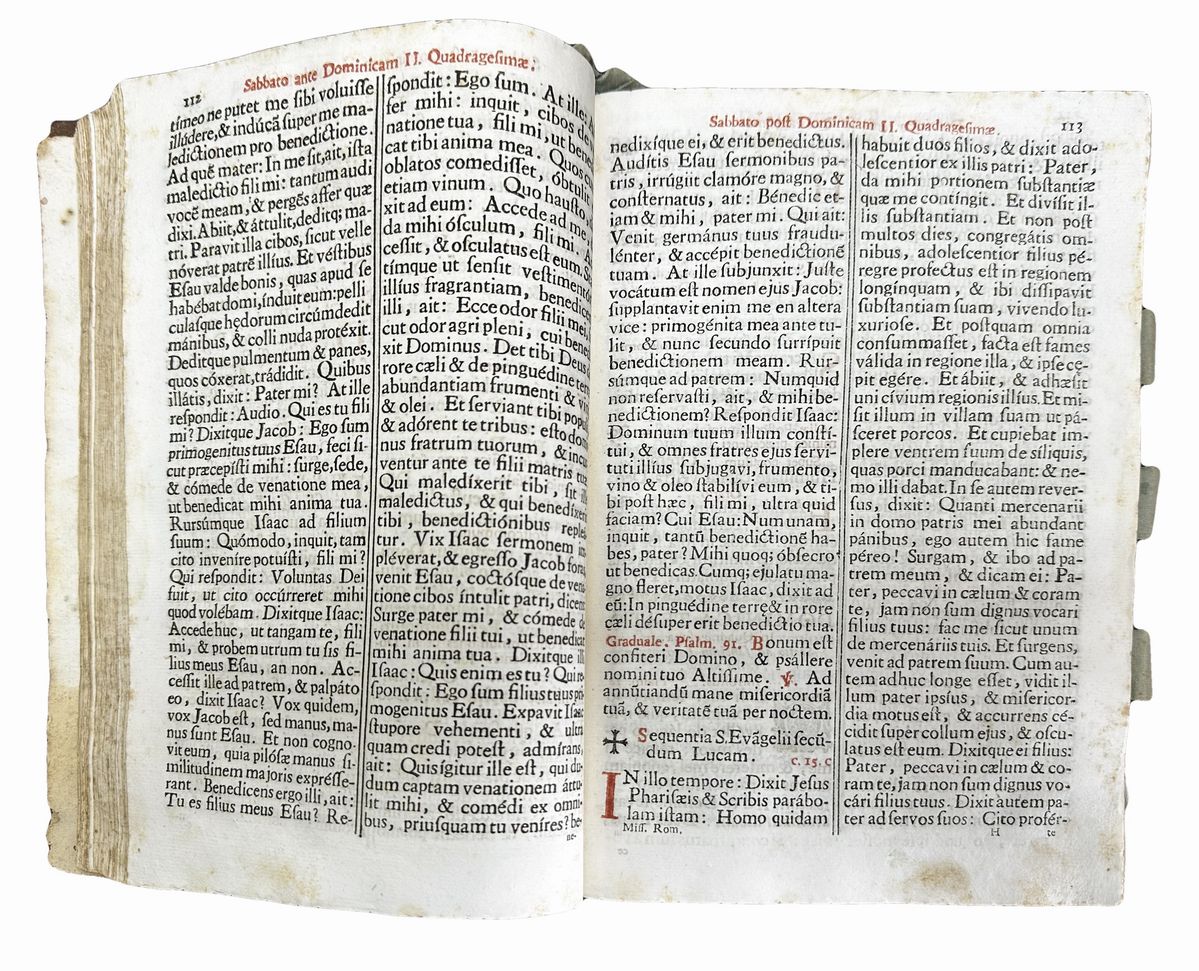 112
Sabbato ante Dominicam II. Quadragesimæ.
timeo ne putet me sibi voluisse
illúdere, & indúcā super me ma-
ledictionem pro benedictione.
Ad quē mater: In me sit, ait, ista
maledictio fili mi: tantum audi
vocē meam, & pergēs affer quæ
dixi. Abiit, & áttulit, deditq; ma-
tri. Paravit illa cibos, sicut velle
nóverat patrē illíus. Et véstibus
Esau valde bonis, quas apud se
habébat domi, índuit eum: pelli
culasque hędorum circúmdedit
mánibus, & colli nuda protéxit.
Deditque pulmentum & panes,
quos cóxerat, trádidit. Quibus
illátis, dixit: Pater mi? At ille
respondit: Audio. Qui es tu fili
mi? Dixitque Jacob: Ego sum
primogenitus tuus Esau, feci si-
cut præcepísti mihi: surge, sede,
& cómede de venatione mea,
ut benedicat mihi anima tua.
Rursúmque Isaac ad filium
suum: Quómodo, inquit, tam
cito invenire potuisti, fili mi?
Qui respondit: Voluntas Dei
fuit, ut cito occúrreret mihi
quod volébam. Dixitque Isaac:
Accede huc, ut tangam te, fili
mi, & probem utrum tu sis fi-
lius meus Esau, an non. Ac-
cessit ille ad patrem, & palpáto
eo, dixit Isaac? Vox quidem,
vox Jacob est, sed manus, ma-
nus sunt Esau. Et non cogno-
vit eum, quia pilósæ manus si-
militudinem majoris expresse-
rant. Benedicens ergo illi, ait:
Tu es filius meus Esau? Re-
spondit: Ego sum. At ille:
fer mihi: inquit, cibos de
natione tua, fili mi, ut bene
cat tibi anima mea. Quos
oblatos comedisset, óbtulit
etiam vinum. Quo hausto,
xit ad eum: Accede ad me,
da mihi ósculum, fili mi.
cessit, & osculatus est eum.
tímque ut sensit vestimentó
illíus fragrantiam, benedice
illi, ait: Ecce odor filii mei,
cut odor agri pleni, cui bened
xit Dominus. Det tibi Deus
rore cæli & de pinguédine terr
abundantiam frumenti & vi
& olei. Et serviant tibi popul
& adórent te tribus: esto dom
nus fratrum tuorum, & incu
ventur ante te filii matris tuæ
Qui maledíxerit tibi, sit ille
maledictus, & qui benedíxeri
tibi, benedictiónibus reple
tur. Vix Isaac sermonem im
pléverat, & egresso Jacob foras
venit Esau, coctósque de vena
tione cibos íntulit patri, dicen
Surge pater mi, & cómede de
venatione filii tui, ut benedicat
mihi anima tua. Dixitque illi
Isaac: Quis enim es tu? Qui re
spondit: Ego sum filius tuus pri
mogenitus Esau. Expavit Isaac
stupore vehementi, & ultra
quam credi potest, admírans,
ait: Quis ígitur ille est, qui du-
dum captam venationem áttu-
lit mihi, & comédi ex omni-
bus, priusquam tu veníres? be-
ne-
Sabbato post Dominicam II. Quadragesimæ.
113
nedixíque ei, & erit benedictus.
Audítis Esau sermonibus pa-
tris, irrúgiit clamóre magno, &
consternatus, ait: Bénedic et-
iam & mihi, pater mi. Qui ait:
Venit germánus tuus fraudu-
lénter, & accépit benedictionē
tuam. At ille subjunxit: Juste
vocátum est nomen ejus Jacob:
supplantavit enim me en altera
vice: primogénita mea ante tu-
lit, & nunc secundo surrípuit
benedictionem meam. Rur-
súmque ad patrem: Numquid
non reservasti, ait, & mihi be-
nedictionem? Respondit Isaac:
Dominum tuum illum constí-
tui, & omnes fratres ejus servi-
tuti illíus subjugavi, frumento,
vino & oleo stabilívi eum, & ti-
bi post hæc, fili mi, ultra quid
faciam? Cui Esau: Num unam,
inquit, tantū benedictionē ha-
bes, pater? Mihi quoq; óbsecro
ut benedicas. Cumq; ejulatu ma-
gno fleret, motus Isaac, dixit ad
eū: In pinguédine terrę & in rore
cæli désuper erit benedictio tua.
Graduale. Psalm. 91. Bonum est
confiteri Domino, & psállere
nomini tuo Altissime. ℣. Ad
annūtiandū mane misericordiā
tuā, & veritatē tuā per noctem.
✠ Sequentia S. Evāgelii secū-
dum Lucam.
c. 15. c
IN illo tempore: Dixit Jesus
Pharisæis & Scribis parábo-
lam istam: Homo quidam
Miss. Rom.
habuit duos filios, & dixit ado-
lescentior ex illis patri: Pater,
da mihi portionem substantiæ
quæ me contíngit. Et divísit il-
lis substantiam. Et non post
multos dies, congregátis om-
nibus, adolescentior filius pé-
regre profectus est in regionem
longínquam, & ibi dissipavit
substantiam suam, vivendo lu-
xuriose. Et postquam omnia
consummasset, facta est fames
válida in regione illa, & ipse cę-
pit egére. Et ábiit, & adhæsit
uni cívium regionis illíus. Et mi-
sit illum in villam suam ut pá-
sceret porcos. Et cupiebat im-
plere ventrem suum de síliquis,
quas porci manducabant: & ne-
mo illi dabat. In se autem rever-
sus, dixit: Quanti mercenarii
in domo patris mei abundant
pánibus, ego autem hic fame
péreo! Surgam, & ibo ad pa-
trem meum, & dicam ei: Pa-
ter, peccavi in cælum & coram
te, jam non sum dignus vocari
filius tuus: fac me sicut unum
de mercenáriis tuis. Et surgens,
venit ad patrem suum. Cum au-
tem adhuc longe esset, vidit il-
lum pater ipsíus, & misericor-
dia motus est, & accurrens cé-
cidit super collum ejus, & oscu-
latus est eum. Dixitque ei filius:
Pater, peccavi in cælum & co-
ram te, jam non sum dignus vo-
cári filius tuus. Dixit áutem pa-
ter ad servos suos: Cito profér-
H
te